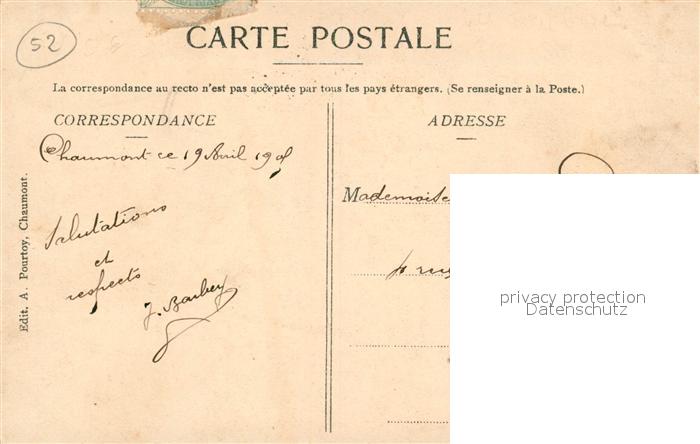 52
CARTE POSTALE
La correspondance au recto n'est pas acceptée par tous les pays étrangers. (Se renseigner à la Poste.)
CORRESPONDANCE
ADRESSE
Chaumont ce 19 Avril
Mademoise
Salutations
et
respects
J. Barbey
rue
Edit. A. Pourtoy, Chaumont.
privacy protection
Datenschutz